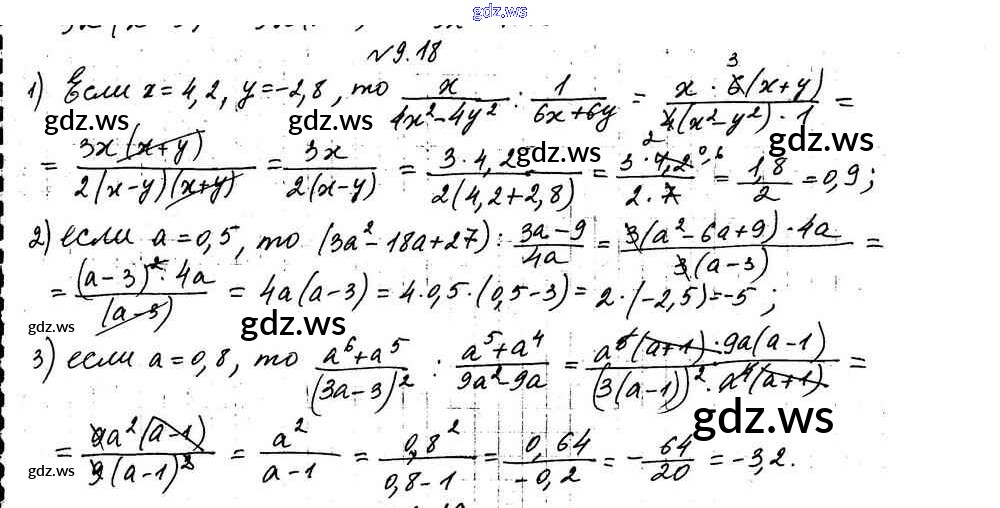 gdz.ws
№9.18
1) Если x = 4,2, y = -2,8, то x/(4x² - 4y²) : 1/(6x + 6y) = (x · 6(x + y))/(4(x² - y²) · 1) = 3 2
gdz.ws gdz.ws
= 3x(x + y)/(2(x - y)(x + y)) = 3x/(2(x - y)) = 3 · 4,2/(2(4,2 + 2,8)) = 3 · 4,2/(2 · 7) = 1,8/2 = 0,9; 0,6
gdz.ws gdz.ws
2) если a = 0,5, то (3a² - 18a + 27) : (3a - 9)/4a = 3(a² - 6a + 9) · 4a/(3(a - 3)) =
= (a - 3)² · 4a/(a - 3) = 4a(a - 3) = 4 · 0,5 · (0,5 - 3) = 2 · (-2,5) = -5;
gdz.ws gdz.ws gdz.ws
3) если a = 0,8, то (a⁶ + a⁵)/(3a - 3)² : (a⁵ + a⁴)/(9a² - 9a) = a⁵(a + 1) · 9a(a - 1)/((3(a - 1))² · a⁴(a + 1)) =
gdz.ws
= 9a²(a - 1)/(9(a - 1)²) = a²/(a - 1) = 0,8²/(0,8 - 1) = 0,64/(-0,2) = -64/20 = -3,2.
gdz.ws gdz.ws